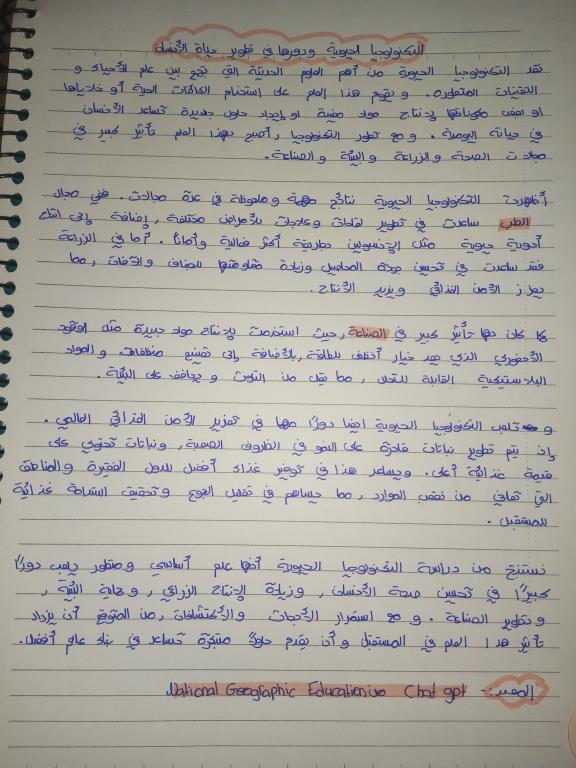 التكنولوجيا الحيوية ودورها في تطوير حياة الأنسان
تعد التكنولوجيا الحيوية من أهم العلوم الحديثة التي تجمع بين علم الأحياء و
التقنيات المتطورة. ويقوم هذا العلم على استخدام الكائنات الحية أو خلاياها
او بعض مكوناتها لإنتاج مواد مفيدة او إيجاد حلول جديدة تساعد الأنسان
في حياته اليومية. ومع تطور التكنولوجيا, أصبح لهذا العلم تأثير كبير في
مجالات الصحة والزراعة والبيئة والصناعة.
أظهرت التكنولوجيا الحيوية نتائج مهمة وملحوظة في عدة مجالات. ففي مجال
الطب ساعدت في تطوير لقاحات وعلاجات للأمراض مختلفة, إضافة إلى انتاج
أدوية حيوية مثل الإنسولين بطريقة أكثر فعالية وأماناً. أما في الزراعة
فقد ساعدت في تحسين جودة المحاصيل وزيادة مقاومتها للجفاف والآفات, مما
يعزز الأمن الغذائي ويزيد الأنتاج.
كما كان لها تأثير كبير في الصناعة, حيث استخدمت لإنتاج مواد جديدة مثل الوقود
الأحفوري الذي يعد خيار أنظف للطاقة, بالأضافة إلى تصنيع منظفات والمواد
البلاستيكية القابلة للتحلل, مما يقلل من التلوث ويحافظ على البيئة.
و تلعب التكنولوجيا الحيوية ايضا دورًا مهما في تعزيز الأمن الغذائي العالمي.
إذ يتم تطوير نباتات قادرة على النمو في الظروف الصعبة, ونباتات تحتوي على
قيمة غذائية أعلى. ويساعد هذا في توفير غذاء أفضل للدول الفقيرة والمناطق
التي تعاني من نقص الموارد, مما يساهم في تقليل الجوع وتحقيق استدامة غذائية
للمستقبل.
نستنتج من دراسة التكنولوجيا الحيوية أنها علم أساسي ومتطور يلعب دورًا
كبيرًا في تحسين صحة الأنسان, وزيادة الإنتاج الزراعي, وحماية البيئة,
وتطوير الصناعة. ومع استمرار الأبحاث والأكتشافات, من المتوقع أن يزداد
تأثير هذا العلم في المستقبل وأن يقدم حلولاً مبتكرة تساعد في بناء عالم أفضل.
المصدر:- Chat gpt من National Geographic Education